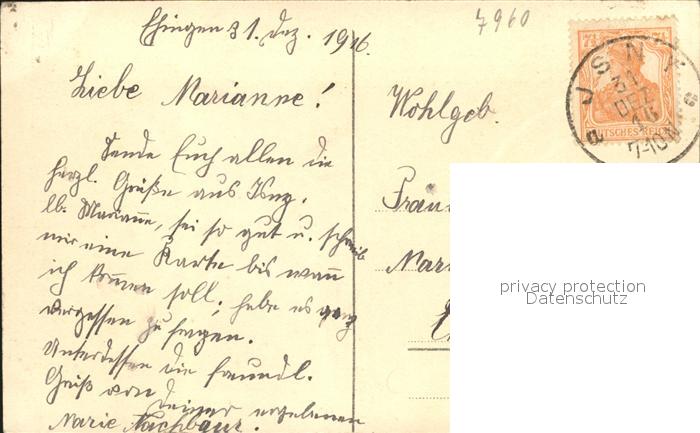 Ehingen 31. Dez. 1916.
7960
Liebe Marianne!
Sende Euch allen die
herzl. Grüße aus Isny.
lb. Marianne, sei so gut u. schreib
mir eine Karte bis wann
ich kommen soll; habe es ganz
vergessen zu fragen.
Unterdessen die freundl.
Grüß von
Deiner ergebenen
Marie Nachbaur.
Wohlgeb.
Fräu
Mari
7½ 7½
DEUTSCHES REICH
ISNY
31
DEZ
16
7-10
privacy protection
Datenschutz